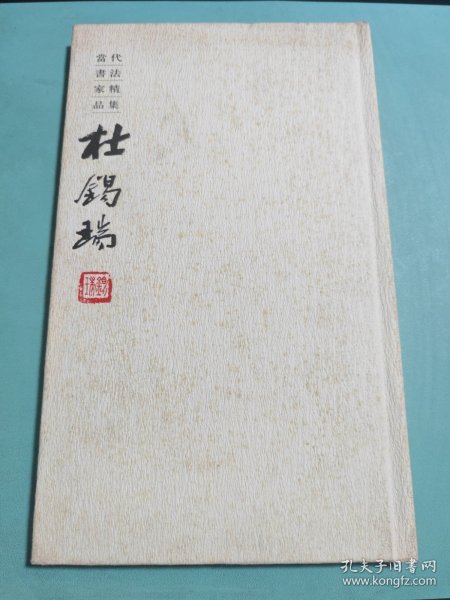 當代
書法
家精
品集
杜錫瑞
錫瑞
孔夫子旧书网
www.kongfz.com